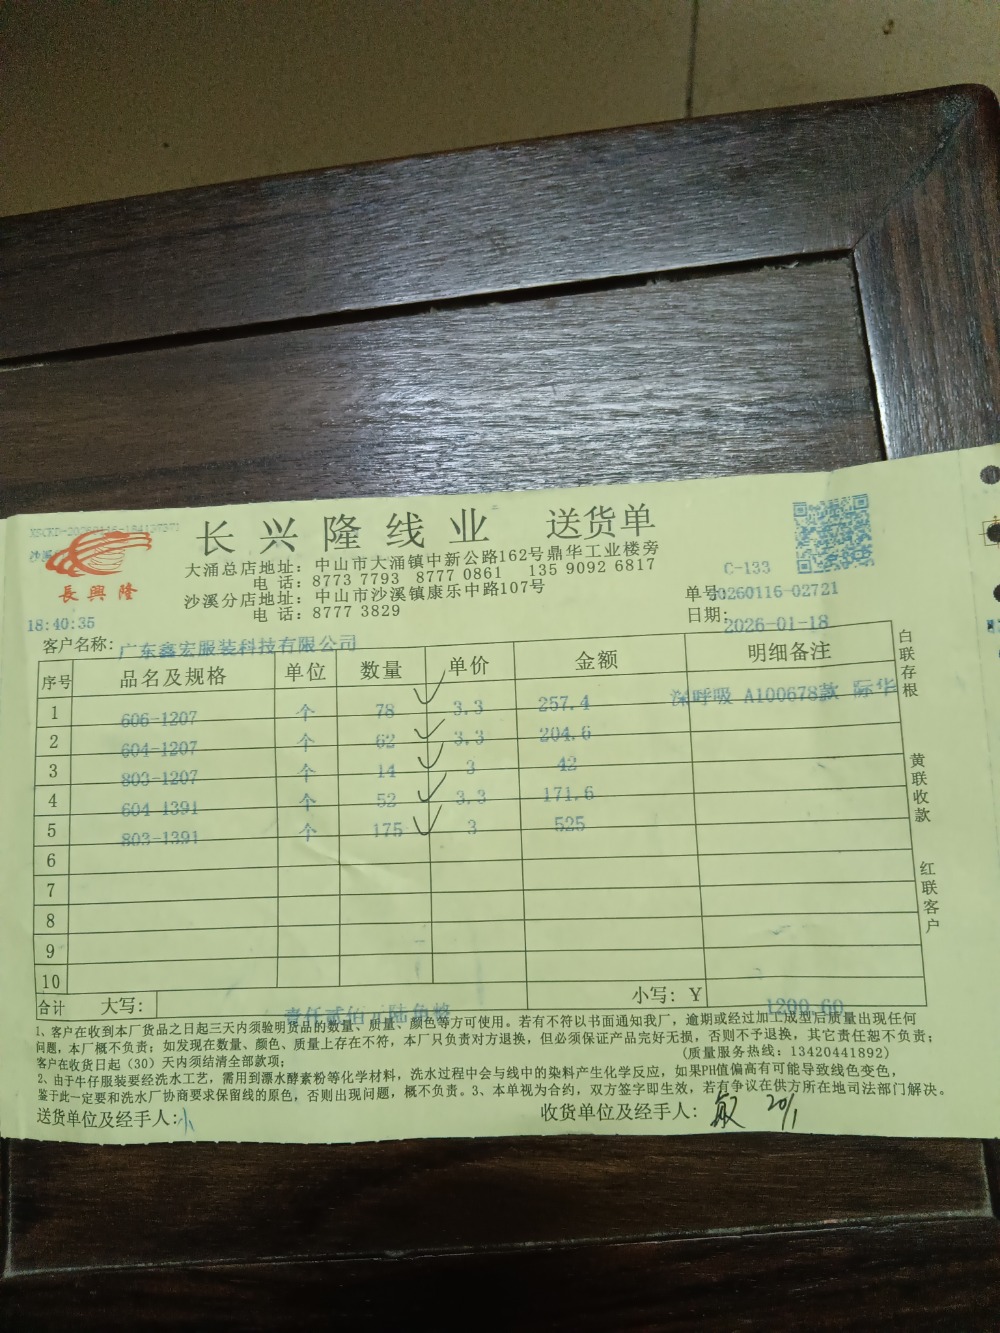 长兴隆线业 送货单
大涌总店地址：中山市大涌镇中新公路162号鼎华工业楼旁
电话：8773 7793 8777 0861 135 9092 6817
沙溪分店地址：中山市沙溪镇康乐中路107号
电话：8777 3829
長興隆
C-133
单号:20260116-02721
18:40:35
日期: 2026-01-18
客户名称: 广东鑫宏服装科技有限公司
序号 品名及规格 单位 数量 单价 金额 明细备注
1 606-1207 个 78 3.3 257.4 深呼吸 A100678款 际华
2 604-1207 个 62 3.3 204.6
3 803-1207 个 14 3 42
4 604-1391 个 52 3.3 171.6
5 803-1391 个 175 3 525
6
7
8
9
10
合计 大写: 壹仟贰佰 陆角整 小写: Y 1200.60
白联存根
黄联收款
红联客户
1、客户在收到本厂货品之日起三天内须验明货品的数量、质量、颜色等方可使用。若有不符以书面通知我厂，逾期或经过加工成型后质量出现任何
问题，本厂概不负责；如发现在数量、颜色、质量上存在不符，本厂只负责对方退换，但必须保证产品完好无损，否则不予退换，其它责任恕不负责；
客户在收货日起（30）天内须结清全部款项； (质量服务热线：13420441892)
2、由于牛仔服装要经洗水工艺，需用到漂水酵素粉等化学材料，洗水过程中会与线中的染料产生化学反应，如果PH值偏高有可能导致线色变色，
鉴于此一定要和洗水厂协商要求保留线的原色，否则出现问题，概不负责。3、本单视为合约，双方签字即生效，若有争议在供方所在地司法部门解决。
送货单位及经手人: 小 收货单位及经手人: 20/1